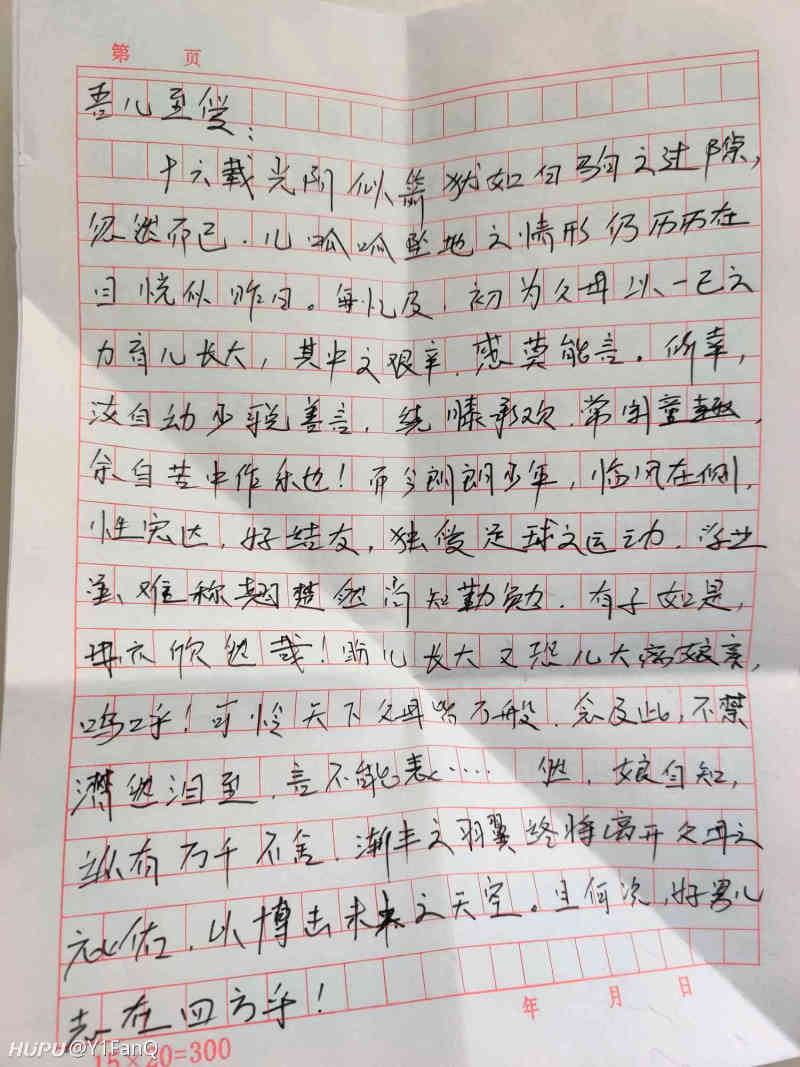 第 页
吾儿至爱:
十六载光阴似箭犹如白驹之过隙,
忽然而已.儿呱呱坠地之情形仍历历在
目恍似昨日。每忆及,初为父母以一己之
力育儿长大,其中之艰辛.感莫能言。所幸,
汝自幼少说善言,绕膝承欢.常闹童趣,
余自苦中作乐也!而今朗朗少年,临风在侧,
性宽达,好结友,独爱足球之运动.学业
虽难称翘楚然尚知勤勉.有子如是,
母亦欣然哉!盼儿长大又恐儿大离娘亲,
呜呼!可怜天下父母皆万般.念及此,不禁
潸然泪至.言不能表……然,娘自知,
纵有万千不舍.渐丰之羽翼终将离开父母之
庇佑.以搏击未来之天空。且何况,好男儿
志在四方乎!
年 月 日
15×20=300
HUPU @Y1FanQ